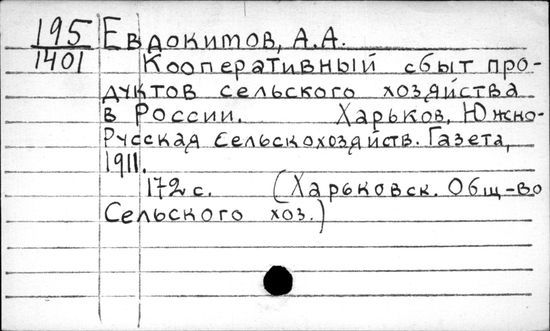 195 Евдокимов, А.А.
1401 Кооперативный сбыт про-
дуктов сельского хозяйства
в России. Харьков, Южно-
Русская Сельскохозяйств. Газета,
1911.
172 с. (Харьковск. Общ-во
Сельского хоз.)